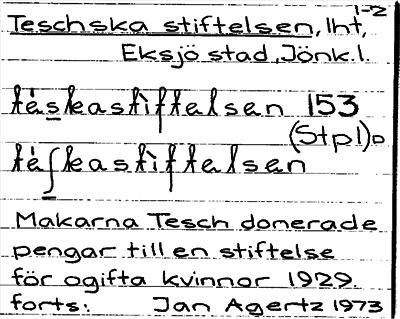 1-2
Teschska stiftelsen, lht,
Eksjö stad, Jönk. l.
tèskastìftelsen 153
(Stpl)
tèʃkastìftelsen
Makarna Tesch donerade
pengar till en stiftelse
för ogifta kvinnor 1929.
forts: Jan Agertz 1973